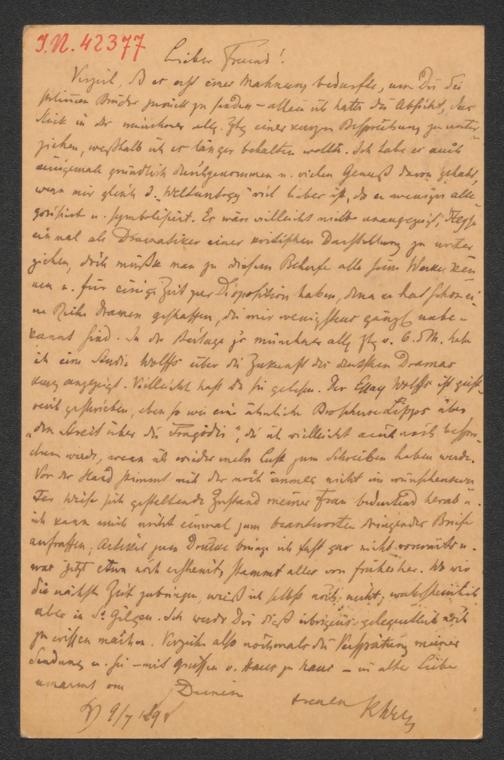 I.N. 42377
Lieber Freund!
Verzeih, daß es erst einer Mahnung bedurfte, um Dir die
schlimmen Brüder zurück zu senden – allein ich hatte die Absicht, das
Stück in der münchner allg. Ztg einer kurzen Besprechung zu unter
ziehen, weßhalb ich es länger behalten wollte. Ich habe es auch
einigemale gründlich durchgenommen u. vielen Genuß davon gehabt,
wenn mir gleich d. „Weltuntergang" viel lieber ist, da er weniger alle
gorisirt u. symbolisirt. Es wäre vielleicht nicht unangezeigt,
einmal als Dramatiker einer kritischen Darstellung zu unter
ziehen, doch müßte man zu diesem Behufe alle seine Werke ken
nen u. für einige Zeit zur Disposition haben, denn er hat schon ei
ne Reihe Dramen geschaffen, die mir wenigstens gänzl. unbe
kannt sind. In der Beilage zur münchner allg. Ztg v. 6. d M. habe
ich eine Studie Wolffs über die Zukunft des deutschen Dramas
kurz angezeigt. Vielleicht hast du sie gelesen. Der Essay Wolffs ist geist
reich geschrieben, eben so wie eine ähnliche Brochure Lipps über
„den Streit über die Tragödie", die ich vielleicht auch noch bespre
chen werde, wenn ich wieder mehr Lust zum Schreiben haben werde.
Vor der Hand stimmt mich der noch immer nicht in wünschenswer
ter Weise sich gestaltende Zustand meiner Frau bedeutend herab u.
ich kann mich nicht einmal zum beantworten dringender Briefe
aufraffen; Artikel zum Drucke bringe ich fast gar nicht vorwärts u.
was jetzt etwa noch erscheint, stammt alles von früher her. Wo wir
die nächste Zeit zubringen, weiß ich selbst noch nicht, wahrscheinlich
aber in St. Gilgen. Ich werde Dir dieß übrigens gelegentlich noch
zu wissen machen. Verzeih also nochmals die Verspätung meiner
Sendung u. sei – mit Grüßen v. Haus zu Haus – in alter Liebe
umarmt von Deinem
treuen
9/7 189